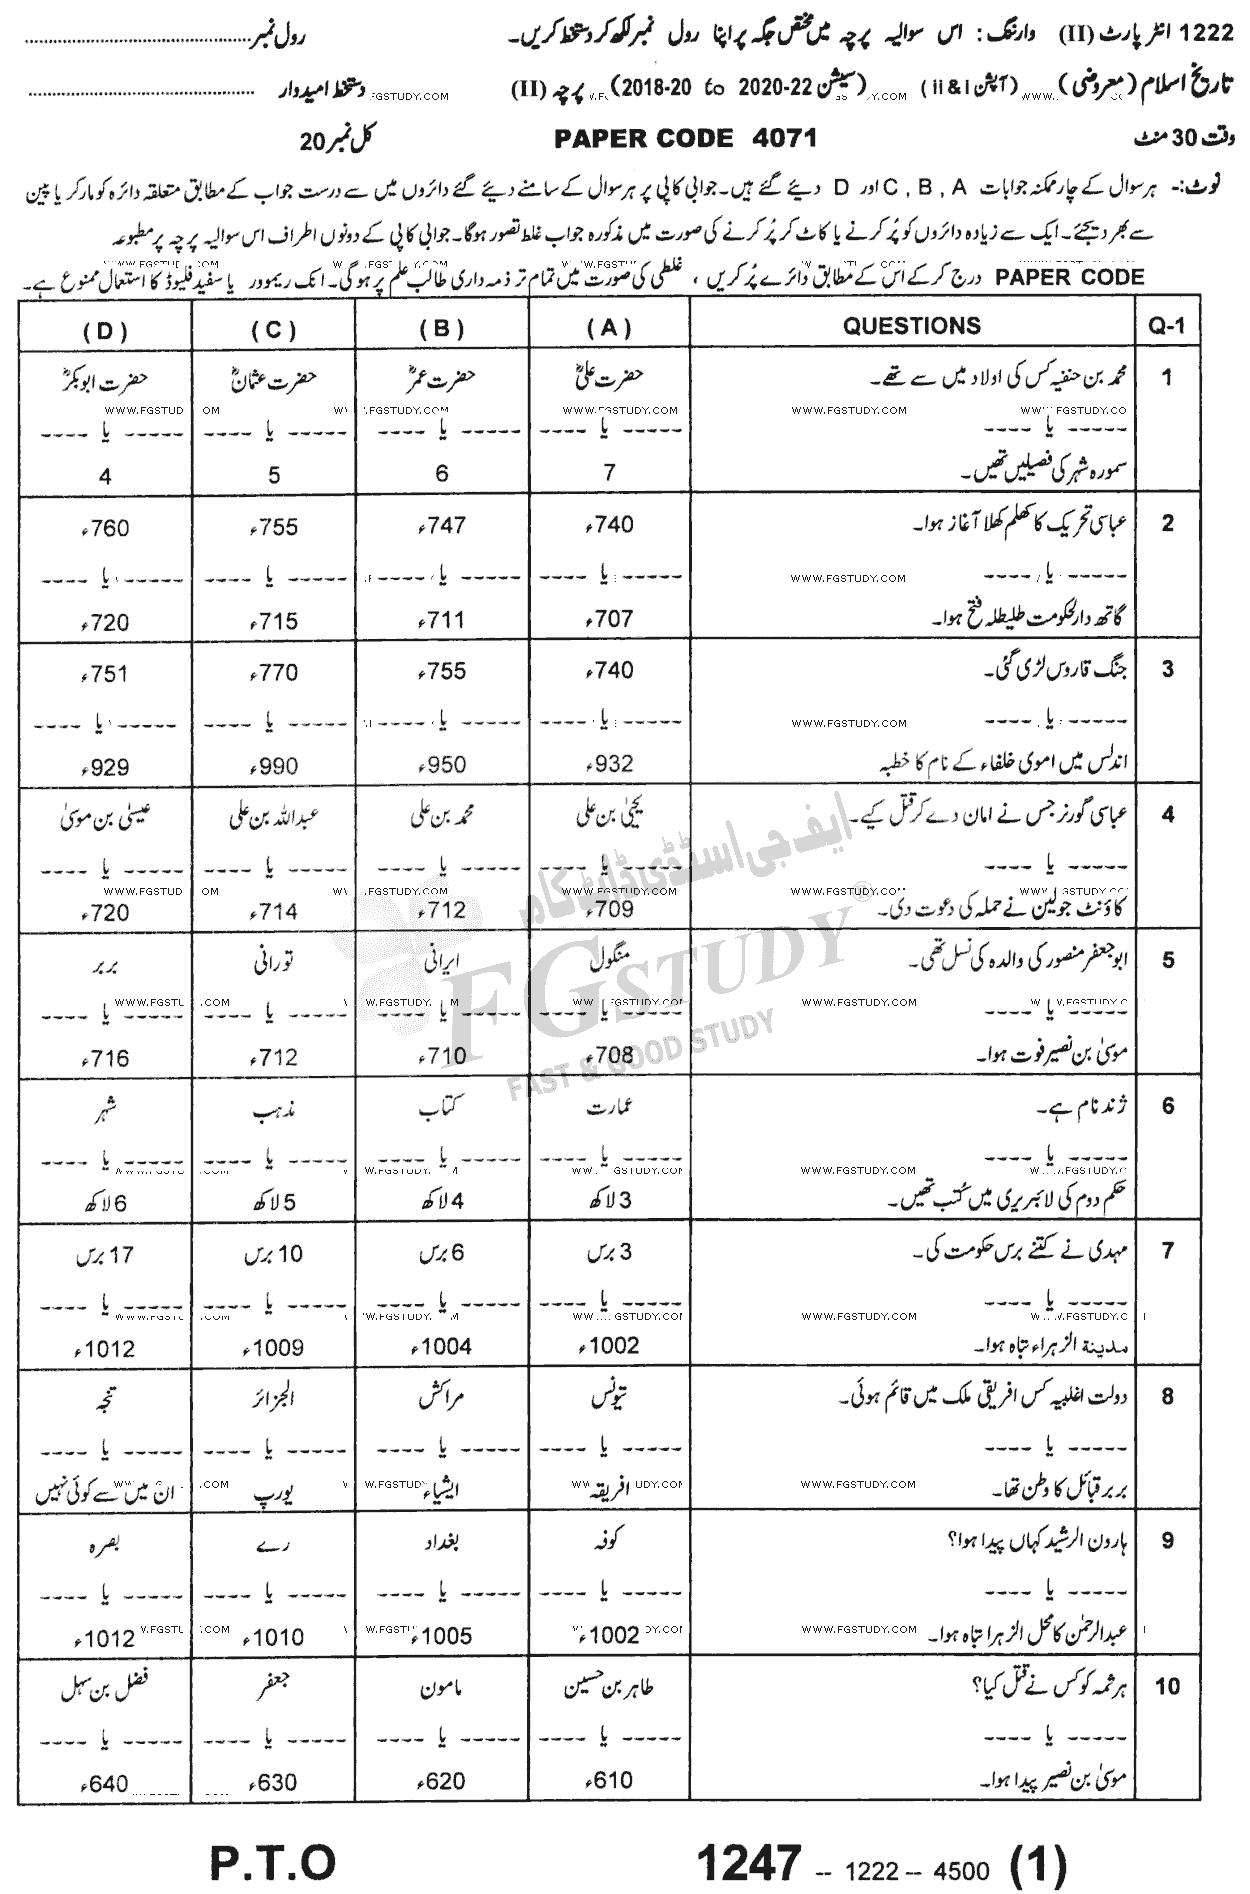 1222 انٹر پارٹ (II) وارننگ: اس سوالیہ پرچہ میں مختص جگہ پر اپنا رول نمبر لکھ کر دستخط کریں۔ رول نمبر
تاریخ اسلام (معروضی) (آپشن ii & i) (سیشن 2018-20 to 2020-22) پرچہ (II) دستخط امیدوار
وقت 30 منٹ PAPER CODE 4071 کل نمبر 20
نوٹ:- ہر سوال کے چار ممکنہ جوابات A , B , C اور D دیئے گئے ہیں۔ جوابی کاپی پر ہر سوال کے سامنے دیئے گئے دائروں میں سے درست جواب کے مطابق متعلقہ دائرہ کو مارکر یا پین
سے بھر دیجئے۔ ایک سے زیادہ دائروں کو پُر کرنے یا کاٹ کر پُر کرنے کی صورت میں مذکورہ جواب غلط تصور ہوگا۔ جوابی کاپی کے دونوں اطراف اس سوالیہ پرچہ پر مطبوعہ
PAPER CODE درج کر کے اس کے مطابق دائرے پُر کریں ، غلطی کی صورت میں تمام تر ذمہ داری طالب علم پر ہوگی۔ انک ریموور یا سفید فلیوڈ کا استعمال ممنوع ہے۔
Q-1 QUESTIONS (A) (B) (C) (D)
1 محمد بن حنفیہ کس کی اولاد میں سے تھے۔ حضرت علیؓ حضرت عمرؓ حضرت عثمانؓ حضرت ابوبکرؓ
---- یا ----- ---- یا ----- ---- یا ----- ---- یا ----- ---- یا -----
سمورہ شہر کی فصیلیں تھیں۔ 7 6 5 4
2 عباسی تحریک کا کھلم کھلا آغاز ہوا۔ 740ء 747ء 755ء 760ء
---- یا ----- ---- یا ----- ---- یا ----- ---- یا ----- ---- یا -----
گاتھ دارلحکومت طلیطلہ فتح ہوا۔ 707ء 711ء 715ء 720ء
3 جنگ قاروس لڑی گئی۔ 740ء 755ء 770ء 751ء
---- یا ----- ---- یا ----- ---- یا ----- ---- یا ----- ---- یا -----
اندلس میں اموی خلفاء کے نام کا خطبہ 932ء 950ء 990ء 929ء
4 عباسی گورنر جس نے امان دے کر قتل کیے۔ یحییٰ بن علی محمد بن علی عبداللہ بن علی عیسیٰ بن موسیٰ
---- یا ----- ---- یا ----- ---- یا ----- ---- یا ----- ---- یا -----
کاؤنٹ جولین نے حملہ کی دعوت دی۔ 709ء 712ء 714ء 720ء
5 ابو جعفر منصور کی والدہ کی نسل تھی۔ منگول ایرانی تورانی بربر
---- یا ----- ---- یا ----- ---- یا ----- ---- یا ----- ---- یا -----
موسیٰ بن نصیر فوت ہوا۔ 708ء 710ء 712ء 716ء
6 ژند نام ہے۔ عمارت کتاب مذہب شہر
---- یا ----- ---- یا ----- ---- یا ----- ---- یا ----- ---- یا -----
حکم دوم کی لائبریری میں کُتب تھیں۔ 3 لاکھ 4 لاکھ 5 لاکھ 6 لاکھ
7 مہدی نے کتنے برس حکومت کی۔ 3 برس 6 برس 10 برس 17 برس
---- یا ----- ---- یا ----- ---- یا ----- ---- یا ----- ---- یا -----
مدینۃ الزہراء تباہ ہوا۔ 1002ء 1004ء 1009ء 1012ء
8 دولت اغلبیہ کس افریقی ملک میں قائم ہوئی۔ تیونس مراکش الجزائر تنجہ
---- یا ----- ---- یا ----- ---- یا ----- ---- یا ----- ---- یا -----
بربر قبائل کا وطن تھا۔ افریقہ ایشیاء یورپ ان میں سے کوئی نہیں
9 ہارون الرشید کہاں پیدا ہوا؟ کوفہ بغداد رے بصرہ
---- یا ----- ---- یا ----- ---- یا ----- ---- یا ----- ---- یا -----
عبدالرحمٰن کا محل الزہرا تباہ ہوا۔ 1002ء 1005ء 1010ء 1012ء
10 ہرثمہ کو کس نے قتل کیا؟ طاہر بن حسین مامون جعفر فضل بن سہل
---- یا ----- ---- یا ----- ---- یا ----- ---- یا ----- ---- یا -----
موسیٰ بن نصیر پیدا ہوا۔ 610ء 620ء 630ء 640ء
ایف جی اسٹڈی ڈاٹ کام
FGSTUDY®
FAST & GOOD STUDY
WWW.FGSTUDY.COM
P.T.O 1247 -- 1222 -- 4500 (1)